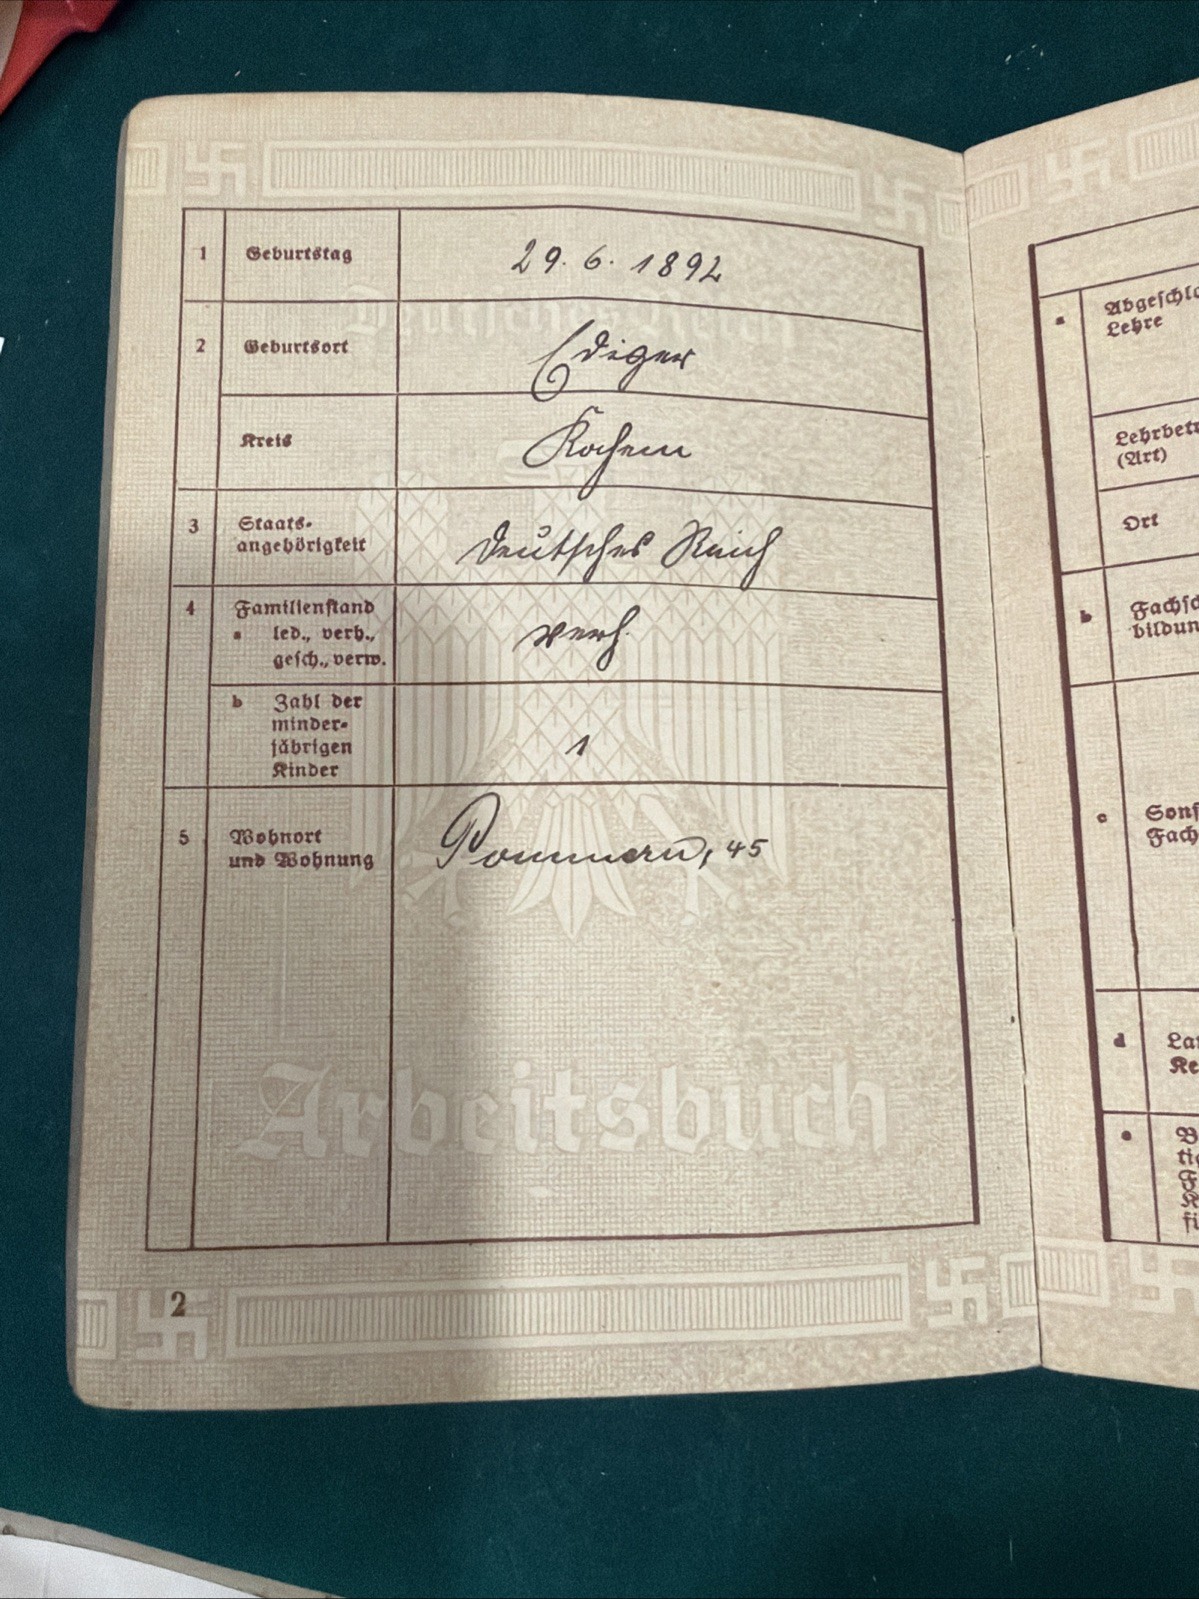 1 Geburtstag 29. 6. 1892
2 Geburtsort Ediger
Kreis Kochem
3 Staats-
angehörigkeit Deutsches Reich
4 Familienstand
a led., verh.,
gesch., verw. verh.
b Zahl der
minder-
jährigen
Kinder 1
5 Wohnort
und Wohnung Pommern, 45
Deutsches Reich
Arbeitsbuch
2
a Abgeschlo
Lehre
Lehrbetr
(Art)
Ort
b Fachsc
bildun
c Sons
Fach
d Lan
Ke
e B
tig
F
K
fü